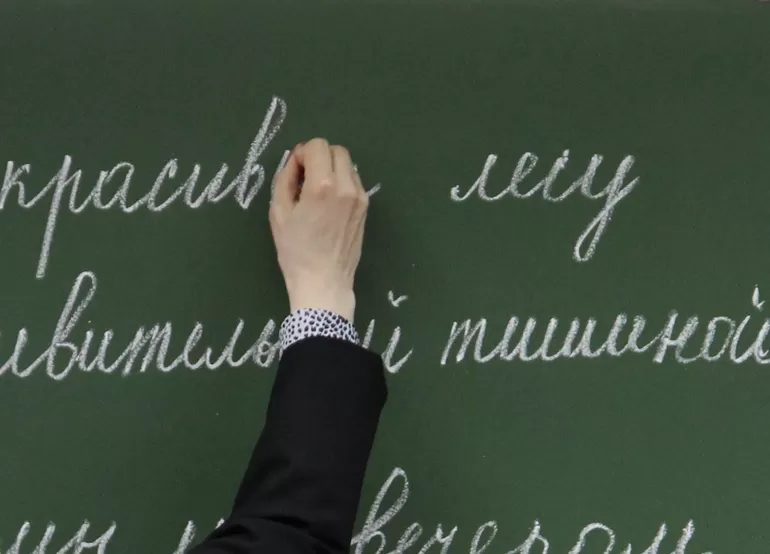 красив лесу
ивительной тишиной
вечером